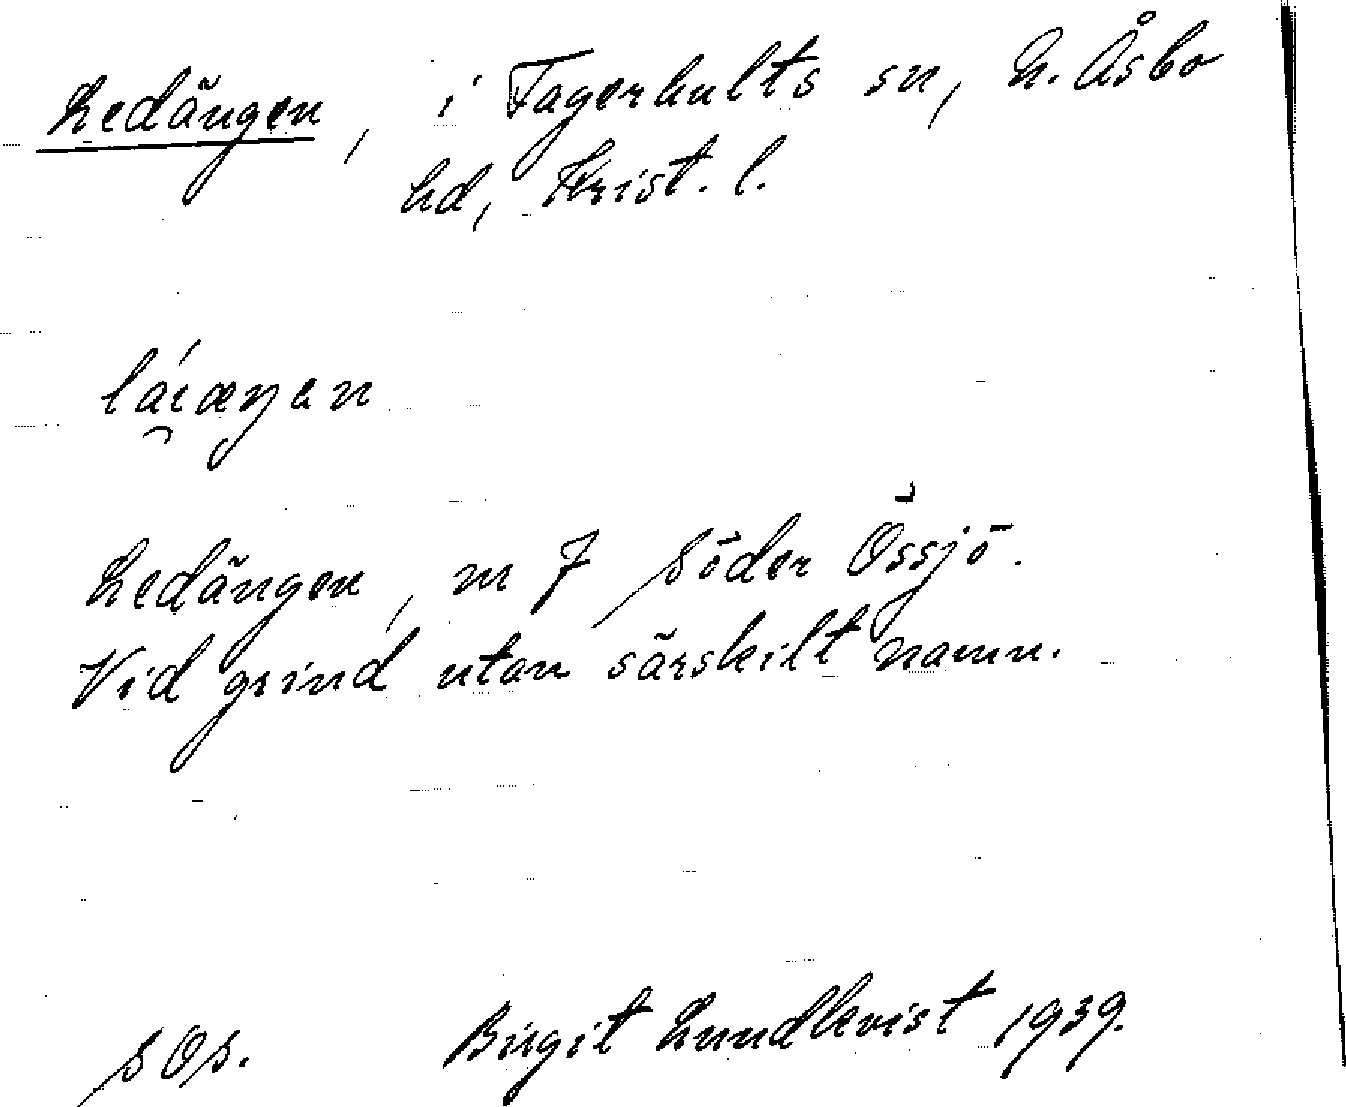 Ledängen, i Fagerhults sn, N. Åsbo
hd, Krist. l.
Ledängen, m 7 Söder Össjö.
Vid grind utan särskilt namn.
SOs. Birgit Lundkvist 1939.